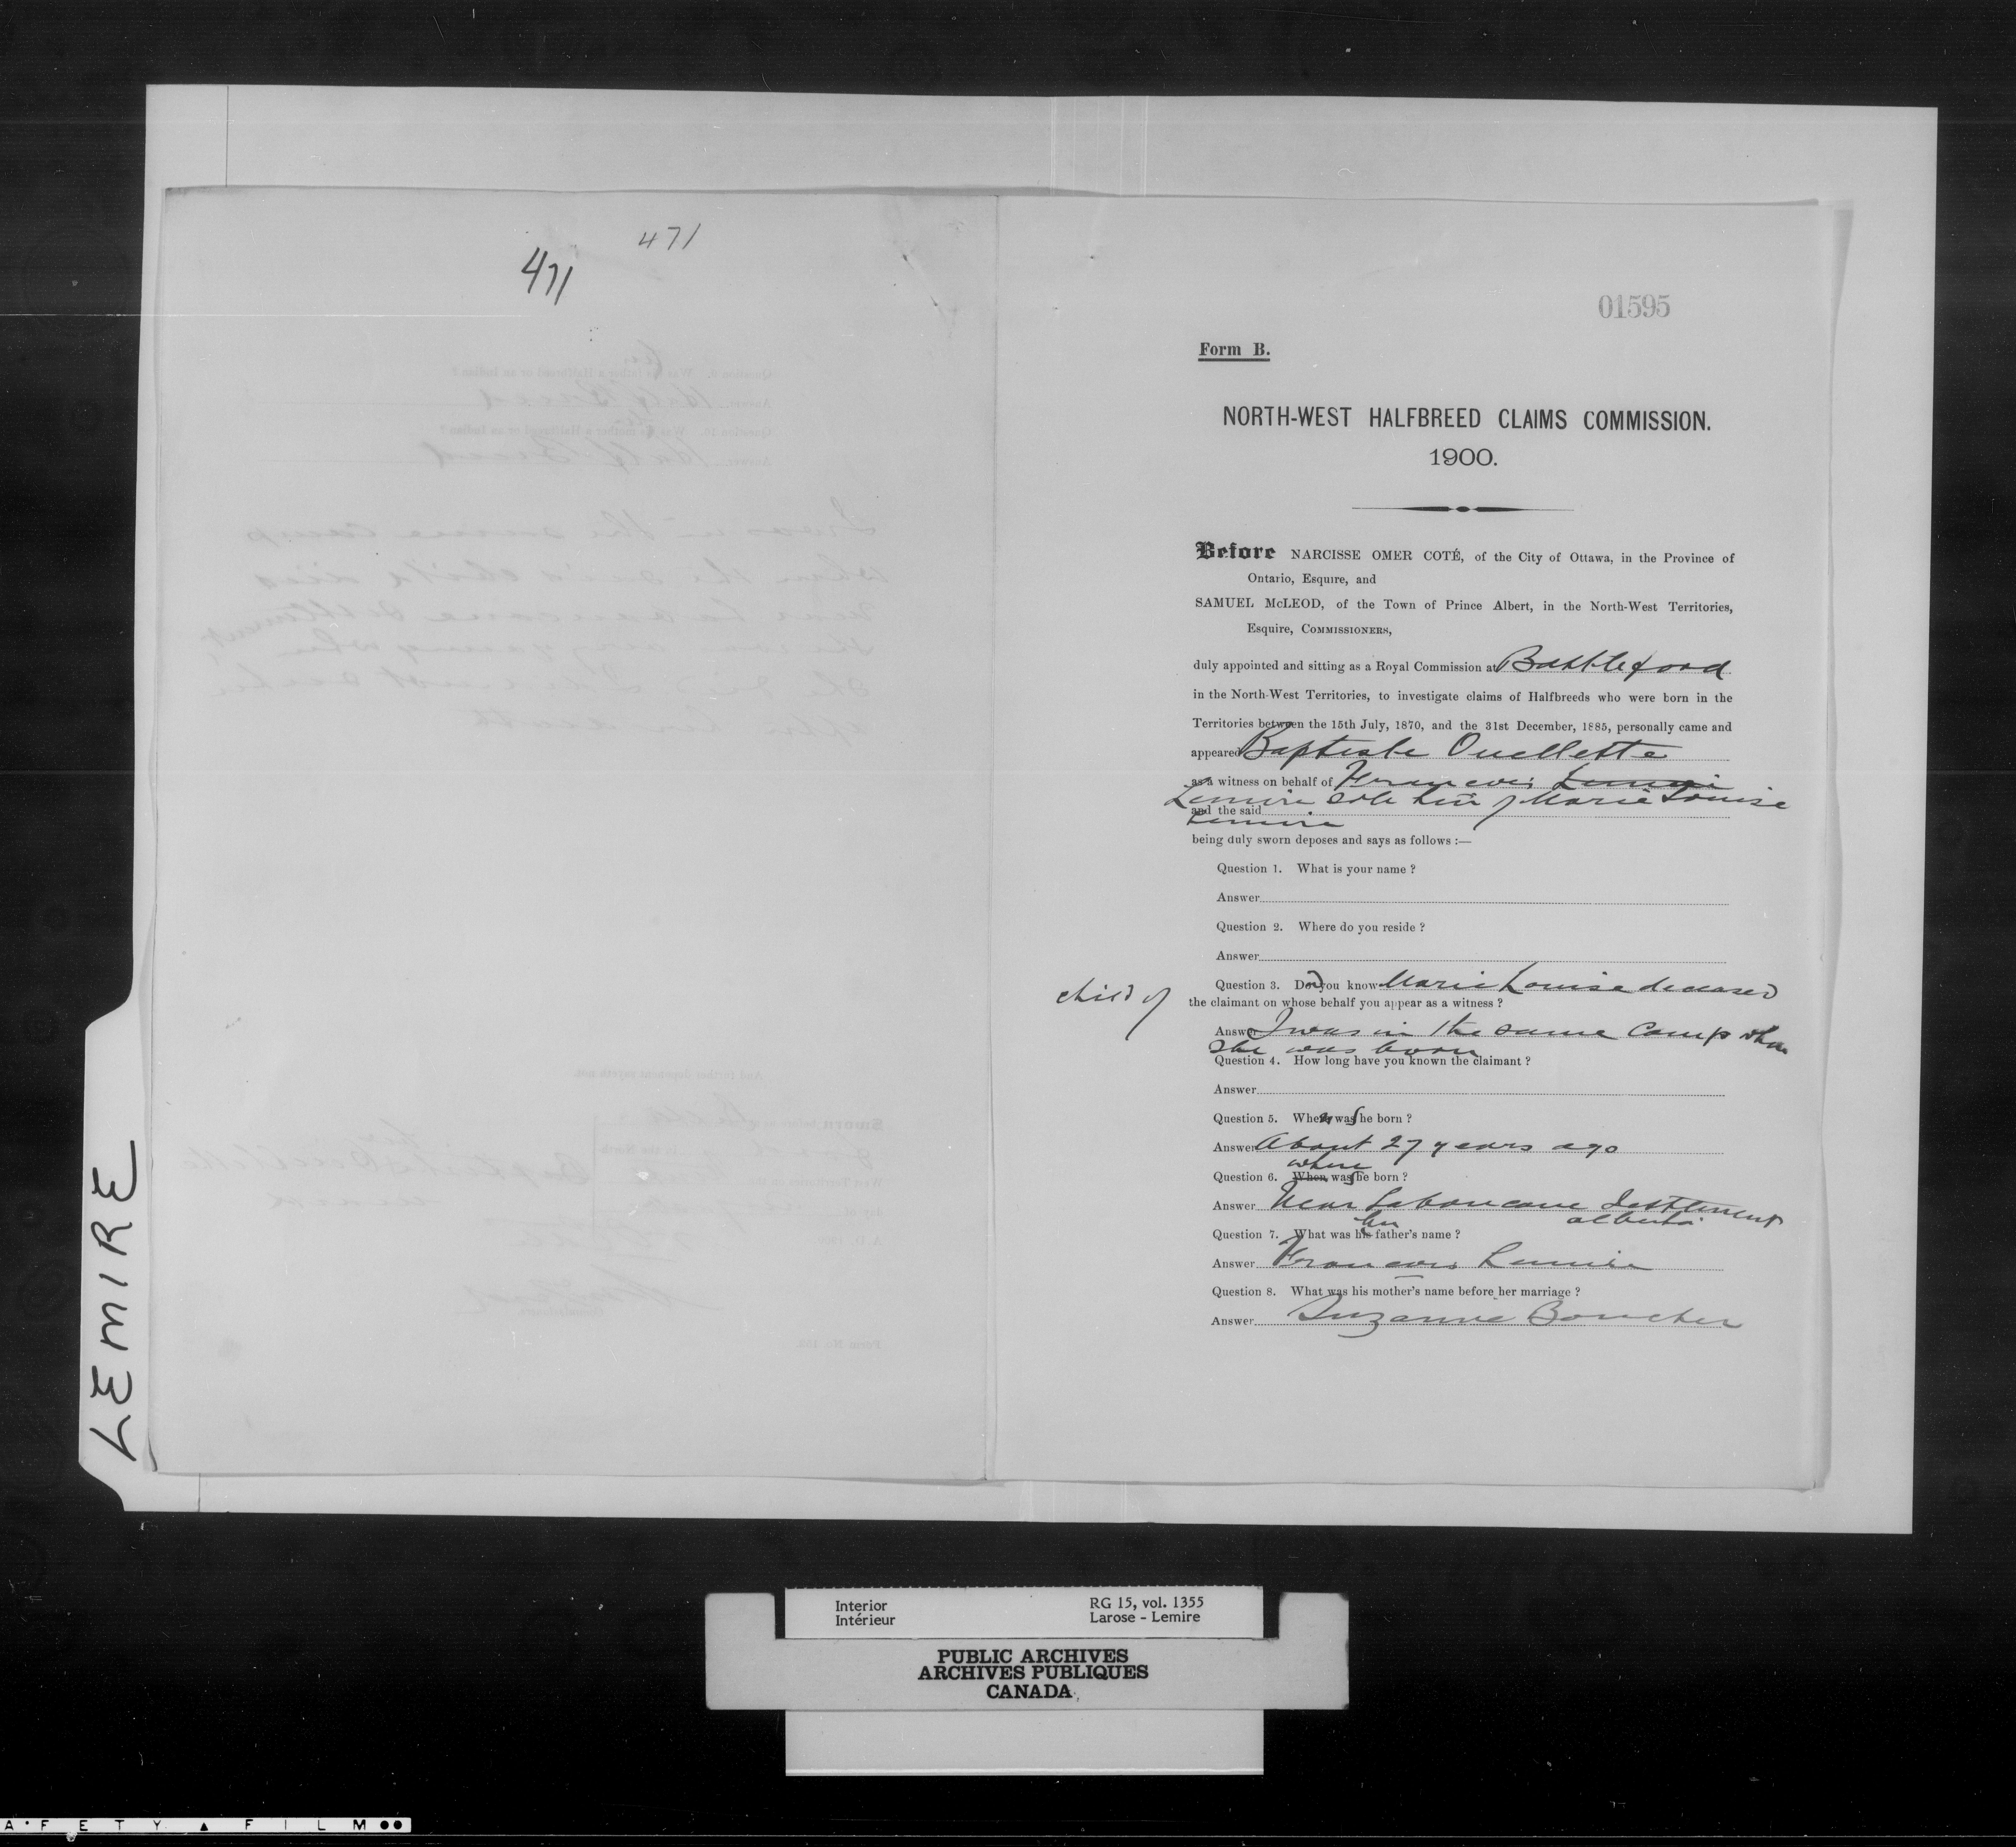 471
471
LEMIRE
01595
Form B.
NORTH-WEST HALFBREED CLAIMS COMMISSION.
1900.
Before NARCISSE OMER COTÉ, of the City of Ottawa, in the Province of
Ontario, Esquire, and
SAMUEL McLEOD, of the Town of Prince Albert, in the North-West Territories,
Esquire, COMMISSIONERS,
duly appointed and sitting as a Royal Commission at Battleford
in the North-West Territories, to investigate claims of Halfbreeds who were born in the
Territories between the 15th July, 1870, and the 31st December, 1885, personally came and
appeared Baptiste Ouellette
as a witness on behalf of Francois Lemire
Lemire sole heir of Marie Louise
and the said
Lemire
being duly sworn deposes and says as follows :—
Question 1. What is your name ?
Answer
Question 2. Where do you reside ?
Answer
Question 3. Do you know Marie Louise deceased
child of the claimant on whose behalf you appear as a witness ?
Answer I was in the same camp when
she was born
Question 4. How long have you known the claimant ?
Answer
Question 5. When was she born ?
Answer About 27 years ago
where
Question 6. When was she born ?
Answer Near Laboucane Settlement
alberta
her
Question 7. What was his father's name ?
Answer Francois Lemire
Question 8. What was his mother's name before her marriage ?
Answer Suzanne Boucher
Interior
Intérieur
RG 15, vol. 1355
Larose - Lemire
PUBLIC ARCHIVES
ARCHIVES PUBLIQUES
CANADA
AFETY ▲ FILM ●●